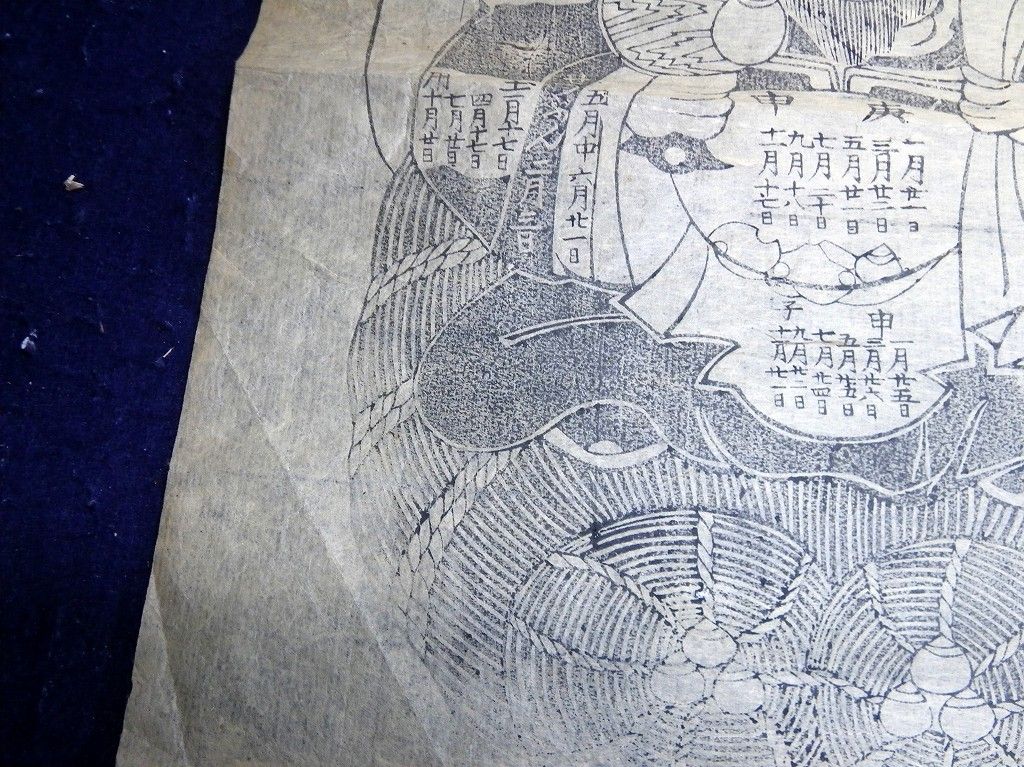 庚申
一月廿一日
三月廿二日
五月廿一日
七月二十日
九月十八日
十一月十七日
甲子
一月廿五日
三月廿六日
五月廿五日
七月廿四日
九月廿二日
十一月廿一日
五月中
六月廿一日
三月三日
四月十七日
七月廿日
十月廿日